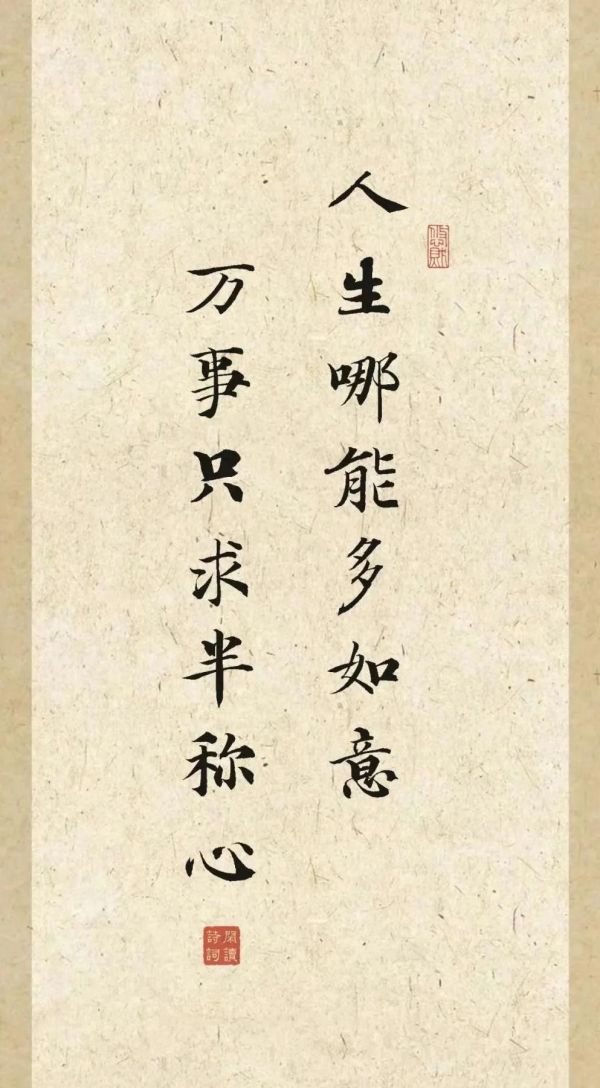 人生哪能多如意
万事只求半称心
閑讀
詩詞